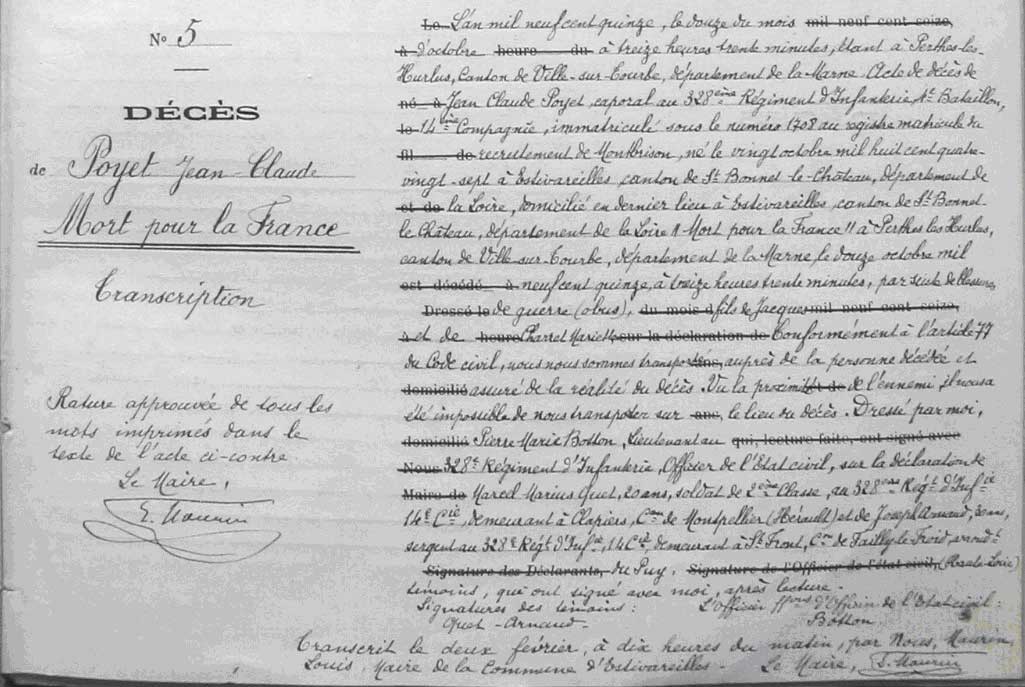 N° 5
DÉCÈS
de Poyet Jean-Claude
Mort pour la France
Transcription
Rature approuvée de tous les
mots imprimés dans le
texte de l'acte ci-contre
Le Maire,
E. Maurin
Le L'An mil neuf cent quinze, le douze du mois mil neuf cent seize,
à d'octobre heure du à treize heures trente minutes, étant à Perthes-les-
Hurlus, Canton de Ville-sur-Tourbe, département de la Marne. Acte de décès de
né à Jean Claude Poyet, caporal au 328ème Régiment d'Infanterie, Bataillon,
le 14ème Compagnie, immatriculé sous le numéro 1708 au registre matricule du
fil de recrutement de Montbrison, né le vingt octobre mil huit cent quatre-
vingt-sept à Estivareilles, canton de St Bonnet-le-Château, département de
et de la Loire, domicilié en dernier lieu à Estivareilles, canton de St Bonnet
le Château, département de la Loire "Mort pour la France" à Perthes les Hurlus,
canton de Ville-sur-Tourbe, département de la Marne, le douze octobre mil
est décédé à neuf cent quinze, à treize heures trente minutes, par suite de blessures
Dressé le de guerre (obus), du mois d fils de Jacques mil neuf cent seize,
à et de heure Charret Mariette sur la déclaration de Conformément à l'article 77
du Code civil, nous nous sommes transportés ans, auprès de la personne décédée et
domicilié assuré de la réalité du décès. Vu la proximité de de l'ennemi il nous a
été impossible de nous transporter sur ans, le lieu du décès. Dressé par moi,
domicilié Pierre Marie Botton, Lieutenant au qui, lecture faite, ont signé avec
Nous 328e Régiment d'Infanterie, Officier de l'Etat civil, sur la déclaration de
Maire de Marcel Marius Quet, 20 ans, soldat de 2ème Classe, au 328ème Régt d'Infie
14e Cie, demeurant à Clapiers, Con de Montpellier (Hérault) et de Joseph Arnaud, 30 ans,
sergent au 328e Régt d'Infie, 14 Cie, demeurant à St Front, Con de Failly-le-Froid, arrondt
Signature des Déclarants, du Puy. Signature de l'Officier de l'état civil, (Haute-Loire)
témoins, qui ont signé avec moi, après lecture.
Signatures des témoins: L'Officier ffons d'Officier de l'Etat civil:
Quet - Arnaud - Botton
Transcrit le deux février, à dix heures du matin, par Nous, Maurin,
Louis, Maire de la Commune d'Estivareilles - Le Maire, E. Maurin